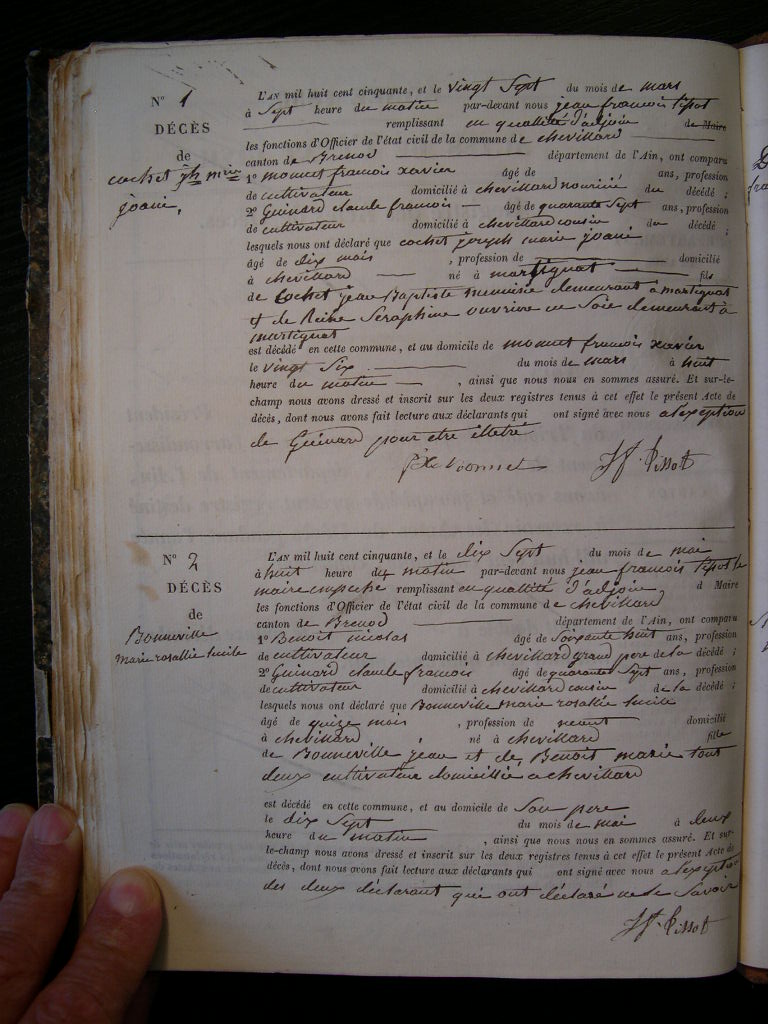 N° 1
DÉCÈS
de
cochet jph marie
joani,
L'AN mil huit cent cinquante, et le vingt Sept du mois de mars
à Sept heure du matin par-devant nous jean francois tissot
remplissant en quallité d'adjoin de Maire
les fonctions d'Officier de l'état civil de la commune de chevillard
canton de Brenod département de l'Ain, ont comparu
1° monnet francois xavier âgé de ans, profession
de cultivateur domicilié à chevillard nourricié du décédé ;
2° Guinard claude francois âgé de quarante Sept ans, profession
de cultivateur domicilié à chevillard cousin du décédé ;
lesquels nous ont déclaré que cochet joseph marie joani
âgé de dix mois , profession de domicilié
à chevillard né à martignat fils
de Cochet jean Baptiste menuisié demeurant à martignat
et de Reine Seraphine ouvrire en Soie demeurant à
martignat
est décédé en cette commune, et au domicile de monnet francois xavier
le vingt Six du mois de mars à huit
heure du matin , ainsi que nous nous en sommes assuré. Et sur-le-
champ nous avons dressé et inscrit sur les deux registres tenus à cet effet le présent Acte de
décès, dont nous avons fait lecture aux déclarants qui ont signé avec nous a l'exception
de Guinard pour etre illetré
monnet Jf. tissot
N° 2
DÉCÈS
de
Bonneville
marie rosallie lucile
L'AN mil huit cent cinquante, et le dix Sept du mois de mai
à huit heure du matin par-devant nous jean francois tissot le
maire empeche remplissant en quallité d'adjoin d Maire
les fonctions d'Officier de l'état civil de la commune de chevillard
canton de Brenod département de l'Ain, ont comparu
1° Benoit nicolas âgé de Soixante huit ans, profession
de cultivateur domicilié à chevillard grand pere de la décédé ;
2° Guinard claude francois âgé de quarante Sept ans, profession
de cultivateur domicilié à chevillard cousin de la décédé ;
lesquels nous ont déclaré que Bonneville marie rosallie lucile
âgé de quize mois , profession de neant domicilié
à chevillard né à chevillard fille
de Bonneville jean et de Benoit marie tout
deux cultivateur domicillié a chevillard
est décédé en cette commune, et au domicile de Son pere
le dix Sept du mois de mai à deux
heure du matin , ainsi que nous nous en sommes assuré. Et sur-
le-champ nous avons dressé et inscrit sur les deux registres tenus à cet effet le présent Acte de
décès, dont nous avons fait lecture aux déclarants qui ont signé avec nous a l'exeptio
des deux déclarant qui ont déclaré ne le Savoir
Jf. tissot